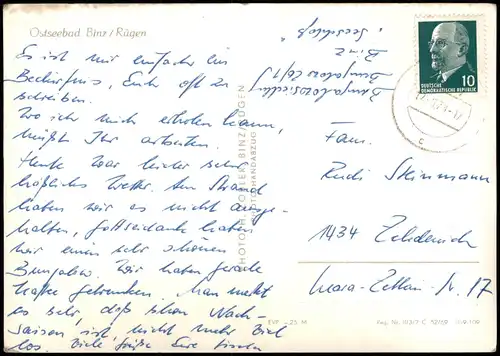 Ostseebad Binz/Rügen
Es ist mir einfach ein
Bedürfnis, Euch oft zu
schreiben.
Wo ich mich erholen kann,
müßt Ihr arbeiten.
Heute war hier sehr
häßliches Wetter. Am Strand
haben wir es nicht ausge-
halten, Gottseidank haben
wir einen sehr schönen
Bungalow. Wir haben gerade
Kaffee getrunken. Man merkt
es sehr, daß schon Nach-
saison ist, nicht mehr viel
los. Viele Grüße Eure
Binz
PHOTO KNOSPE BINZ/RÜGEN
FOTO-HANDABZUG
10
DEUTSCHE
DEMOKRATISCHE REPUBLIK
Fam.
Rudi Steinmann
1434 Zehdenick
Clara-Zetkin-Str. 17
EVP -.25 M
Reg. Nr.